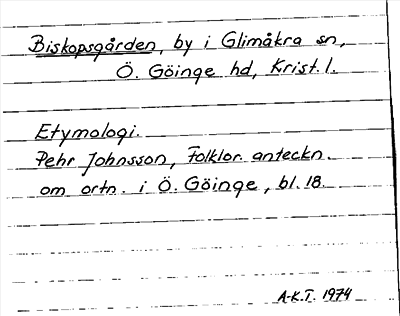 Biskopsgården, by i Glimåkra sn,
Ö. Göinge hd, Krist. l.
Etymologi.
Pehr Johnsson, Folklor. anteckn.
om ortn. i Ö. Göinge, bl. 18.
A-K.T. 1974